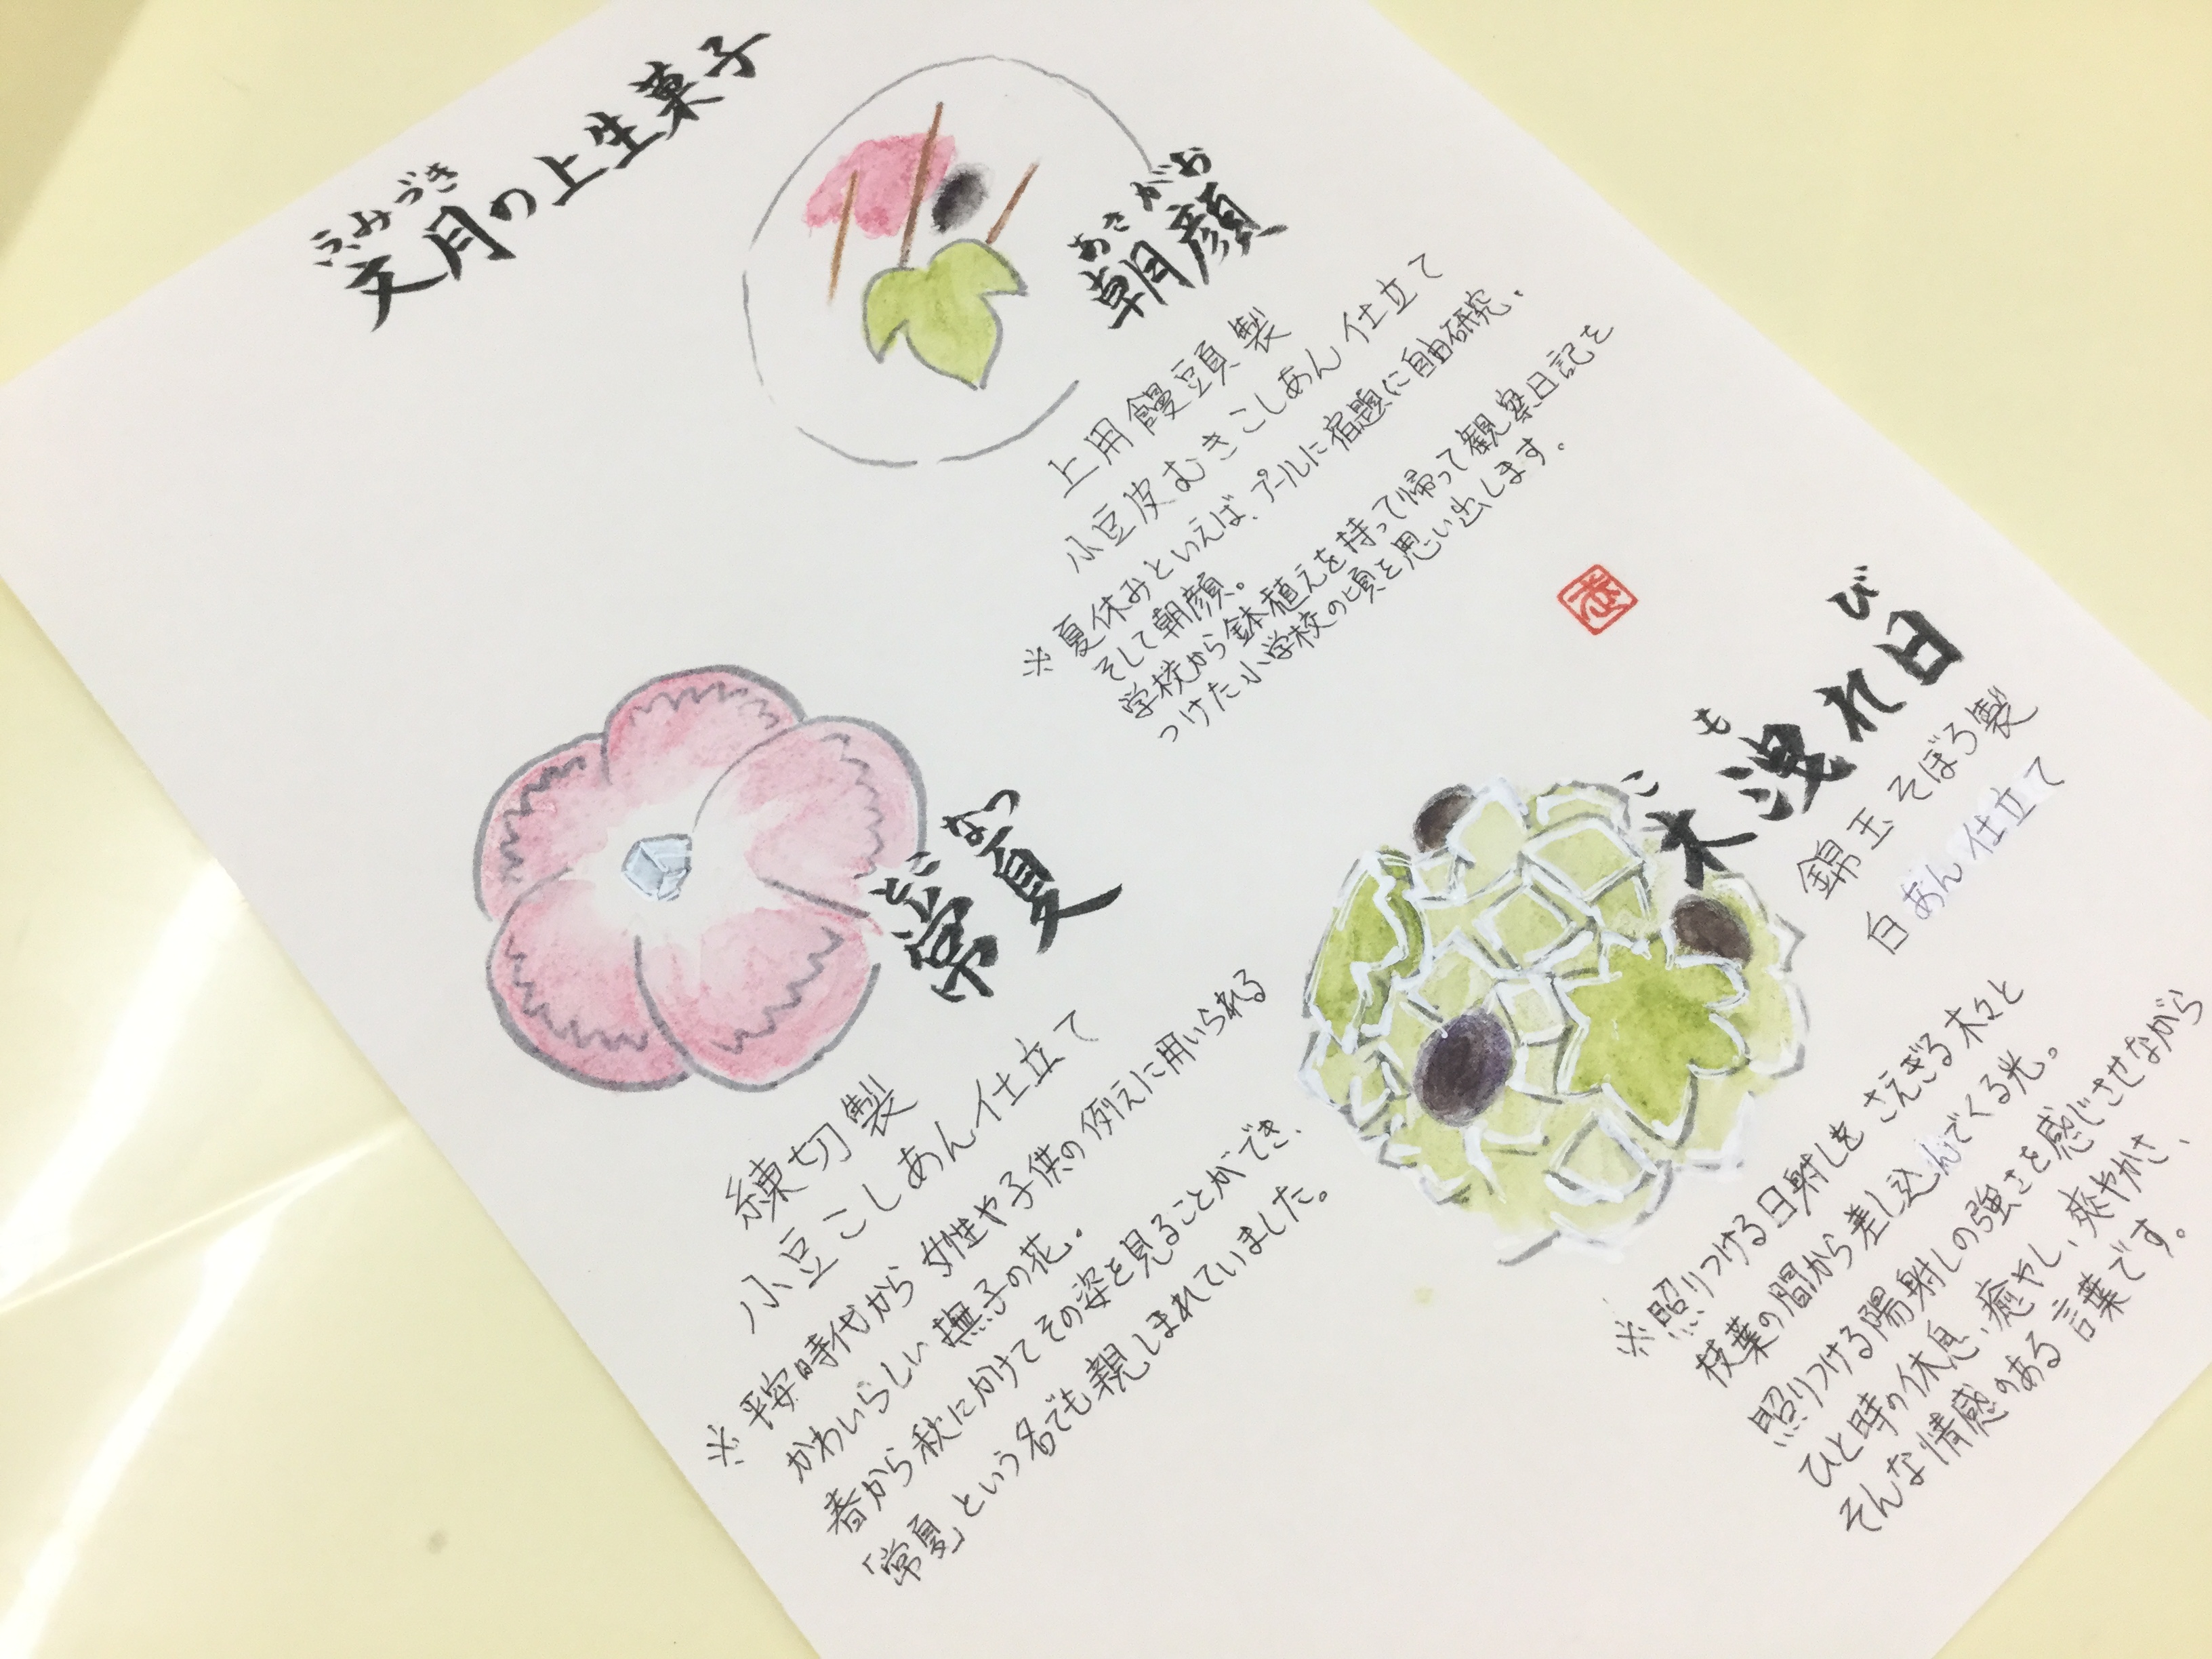 ふみづき
文月の上生菓子
あさがお
朝顔
上用饅頭製
小豆皮むきこしあん仕立て
※夏休みといえば、プールに宿題に自由研究、
そして朝顔。
学校から鉢植えを持って帰って観察日記を
つけた小学校の頃を思い出します。
とこなつ
常夏
練切製
小豆こしあん仕立て
※平安時代から女性や子供の例えに用いられる
かわいらしい撫子の花。
春から秋にかけてその姿を見ることができ、
「常夏」という名でも親しまれていました。
こもび
木洩れ日
錦玉そぼろ製
白あん仕立て
※照りつける日射しを さえぎる木々と
枝葉の間から差し込んでくる光。
照りつける陽射しの強さを感じさせながら
ひと時の休息、癒やし、爽やかさ、
そんな情感のある言葉です。